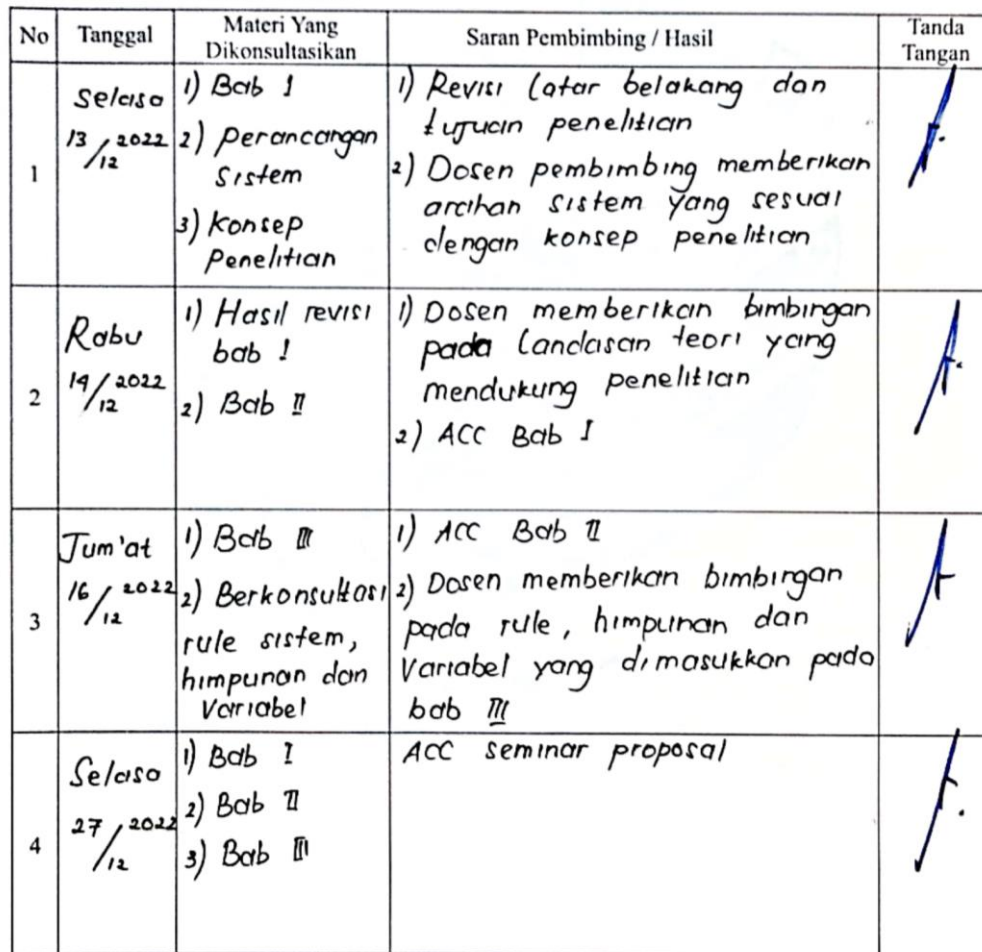 No
Tanggal
Materi Yang
Dikonsultasikan
Saran Pembimbing / Hasil
Tanda
Tangan
1
Selasa
13/12 2022
1) Bab I
2) Perancangan
Sistem
3) Konsep
Penelitian
1) Revisi latar belakang dan
tujuan penelitian
2) Dosen pembimbing memberikan
arahan sistem yang sesuai
dengan konsep penelitian
2
Rabu
14/12 2022
1) Hasil revisi
bab I
2) Bab II
1) Dosen memberikan bimbingan
pada landasan teori yang
mendukung penelitian
2) ACC Bab I
3
Jum'at
16/12 2022
1) Bab III
2) Berkonsultasi
rule sistem,
himpunan dan
Variabel
1) ACC Bab II
2) Dosen memberikan bimbingan
pada rule, himpunan dan
Variabel yang dimasukkan pada
bab III
4
Selasa
27/12 2022
1) Bab I
2) Bab II
3) Bab III
ACC seminar proposal